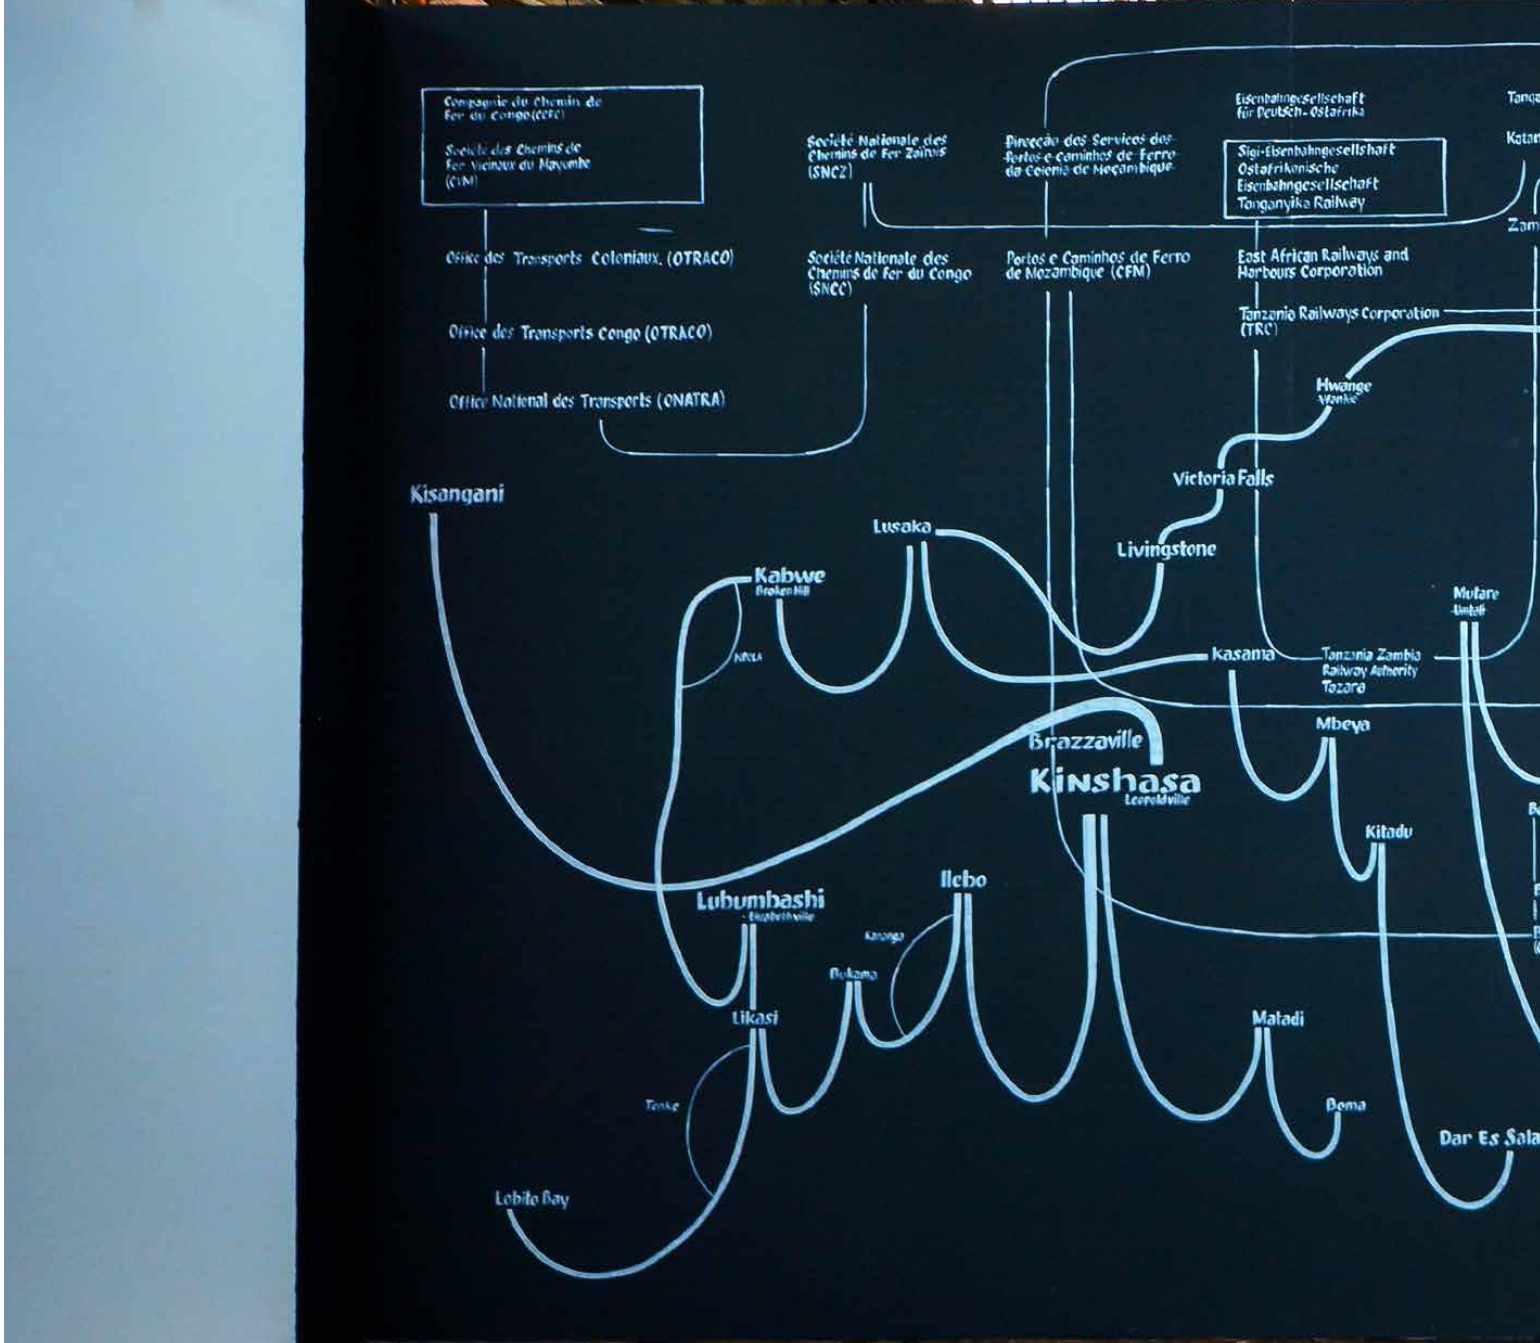 Compagnie du Chemin de
Fer du Congo (CCFC)
Société des Chemins de
Fer Vicinaux du Mayumbe
(CVM)
Office des Transports Coloniaux, (OTRACO)
Office des Transports Congo (OTRACO)
Office National des Transports (ONATRA)
Société Nationale des
Chemins de Fer Zaïrois
(SNCZ)
Société Nationale des
Chemins de Fer du Congo
(SNCC)
Direcção dos Servicos dos
Portos e Caminhos de Ferro
da Colonia de Moçambique
Portos e Caminhos de Ferro
de Mozambique (CFM)
Eisenbahngesellschaft
für Deutsch-Ostafrika
Sigi-Eisenbahngesellshaft
Ostafrikanische
Eisenbahngesellschaft
Tanganyika Railway
East African Railways and
Harbours Corporation
Tanzania Railways Corporation
(TRC)
Tanga
Katan
Zam
Hwange
Wankie
Victoria Falls
Kisangani
Lusaka
Livingstone
Kabwe
Broken Hill
NDOLA
Mutare
Umtali
Kasama
Tanzania Zambia
Railway Authority
Tazara
Mbeya
Brazzaville
Kinshasa
Leopoldville
Kitadu
Ilebo
Lubumbashi
Elizabethville
Kananga
Bukama
Likasi
Matadi
Tenke
Boma
Dar Es Sala
Lobito Bay